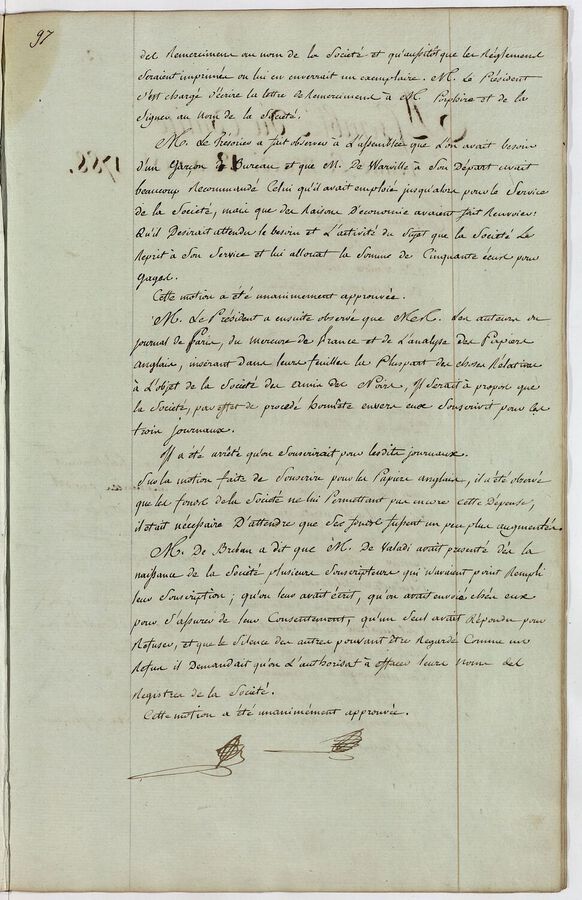 97
des Remerciemens au nom de la Société et qu'aussitôt que les Réglemens
Seraient imprimés on lui en enverrait un exemplaire. M. Le Président
s'est chargé d'écrire la lettre de Remerciemens à M. et de la
Signer au nom de la Société.
M. Le Trésorier a fait observer à L'assemblée que L'on avait besoin
d'un Garçon de Bureau et que M. De Warville à Son Départ avait
beaucoup Recommandé Celui qu'il avait emploié jusqu'alors pour le Service
de la Société, mais que des Raisons D'économie avaient fait Renvoier:
Qu'il Desirait attendu le besoin et L'activité du Sujet que la Société Le
Reprit à Son Service et lui allouat la Somme de Cinquante écus pour
Gages.
Cette motion a été unanimement approuvée.
M. Le Président a ensuite observé que Mess. Les auteurs du
journal de Paris, du mercure de france et de L'analyse des Papiers
anglais, insérant dans leurs feuilles la Pluspart des choses Relatives
à L'objet de la Société des amis des Noirs, Il Serait à propos que
la Société, par effet de procédé honnête envers eux Souscrivit pour les
trois journaux.
Il a été arrêté qu'on Souscrirait pour lesdits journaux.
Sur la motion faite de Souscrire pour les Papiers anglais, il a été observé
que les fonds de la Société ne lui Permettant pas encore cette Dépense,
il était nécessaire D'attendre que Ses fonds fussent un peu plus augmentés.
M. De Breban a dit que M. De Valadi avait presenté dès la
naissance de la Société plusieurs Souscripteurs qui n'avaient point Rempli
leur Souscription; qu'on leur avait écrit, qu'on avait envoié chés eux
pour S'assurer de leur Consentement, qu'un Seul avait Répondu pour
Refuser, et que le Silence des autres pouvant être Regardé Comme un
Refus il Demandait qu'on L'authorisat à effacer leurs noms des
Registres de la Société.
Cette motion a été unanimément approuvée.